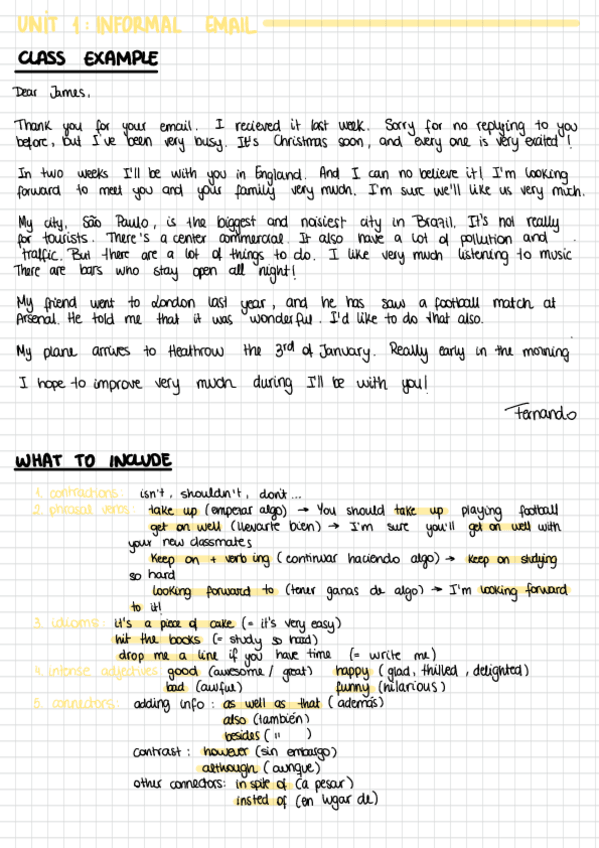 UNIT 1: INFORMAL EMAIL
CLASS EXAMPLE
Dear James,
Thank you for your email. I recieved it last week. Sorry for no replying to you
before, but I've been very busy. It's Christmas soon, and every one is very exited!
In two weeks I'll be with you in England. And I can no believe it! I'm looking
forward to meet you and your family very much. I'm sure we'll like us very much.
My city, São Paulo, is the biggest and noisiest city in Brazil. It's not really
for tourists. There's a center commercial. It also have a lot of pollution and
traffic. But there are a lot of things to do. I like very much listening to music
There are bars who stay open all night!
My friend went to London last year, and he has saw a football match at
Arsenal. He told me that it was wonderful. I'd like to do that also.
My plane arrives to Heathrow the 3rd of January. Really early in the morning
I hope to improve very much during I'll be with you!
Fernando
WHAT TO INCLUDE
1. contractions: isn't, shouldn't, don't...
2. phrasal verbs: take up (empezar algo) → You should take up playing football
get on well (llevarte bien) → I'm sure you'll get on well with
your new classmates
Keep on + verb ing (continuar haciendo algo) → Keep on studying
so hard
looking forward to (tener ganas de algo) → I'm looking forward
to it!
3. idioms: it's a piece of cake (= it's very easy)
hit the books (= study so hard)
drop me a line if you have time (= write me)
4. intense adjectives good (awesome / great) happy (glad, thilled, delighted)
bad (awful) funny (hilarious)
5. connectors: adding info: as well as that (además)
also (también)
besides ( " )
contrast: however (sin embargo)
although (aunque)
other connectors: in spite of (a pesar)
insted of (en lugar de)